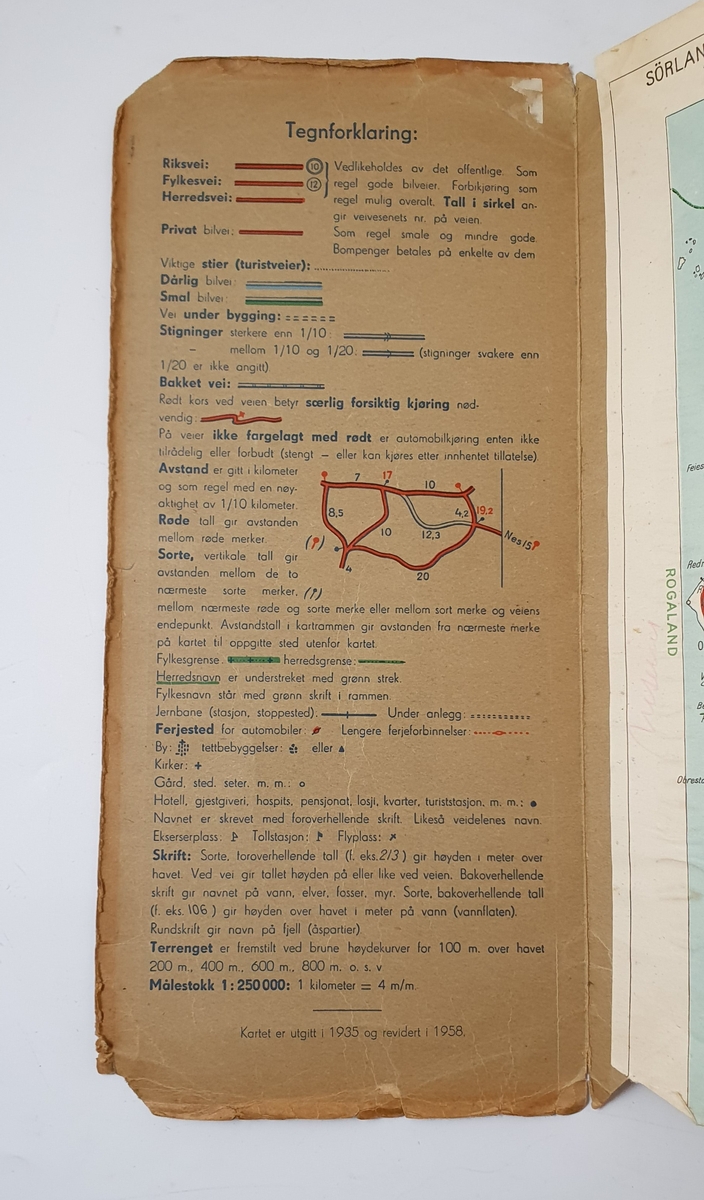 Tegnforklaring:
Riksvei: 10 Vedlikeholdes av det offentlige. Som
Fylkesvei: 12 regel gode bilveier. Forbikjøring som
Herredsvei: regel mulig overalt. Tall i sirkel an-
gir veivesenets nr. på veien.
Privat bilvei: Som regel smale og mindre gode.
Bompenger betales på enkelte av dem
Viktige stier (turistveier):
Dårlig bilvei:
Smal bilvei:
Vei under bygging:
Stigninger sterkere enn 1/10:
– mellom 1/10 og 1/20: (stigninger svakere enn
1/20 er ikke angitt)
Bakket vei:
Rødt kors ved veien betyr særlig forsiktig kjøring nød-
vendig:
På veier ikke fargelagt med rødt er automobilkjøring enten ikke
tilrådelig eller forbudt (stengt – eller kan kjøres etter innhentet tillatelse).
Avstand er gitt i kilometer
og som regel med en nøy-
aktighet av 1/10 kilometer.
Røde tall gir avstanden
mellom røde merker
Sorte, vertikale tall gir
avstanden mellem de to
nærmeste sorte merker,
7 17 10
8,5 10 4,2 19,2
12,3 Nes 15
4 20
mellom nærmeste røde og sorte merke eller mellom sort merke og veiens
endepunkt. Avstandstall i kartrammen gir avstanden fra nærmeste merke
på kartet til oppgitte sted utenfor kartet.
Fylkesgrense: herredsgrense:
Herredsnavn er understreket med grønn strek.
Fylkesnavn står med grønn skrift i rammen.
Jernbane (stasjon, stoppested): Under anlegg:
Ferjested for automobiler: Lengere ferjeforbinnelser:
By: tettbebyggelser: eller
Kirker: +
Gård, sted, seter, m. m.:
Hotell, gjestgiveri, hospits, pensjonat, losji, kvarter, turiststasjon, m. m.:
Navnet er skrevet med foroverhellende skrift. Likeså veidelenes navn.
Ekserserplass: Tollstasjon: Flyplass:
Skrift: Sorte, foroverhellende tall (f. eks. 213) gir høyden i meter over
havet. Ved vei gir tallet høyden på eller like ved veien. Bakoverhellende
skrift gir navnet på vann, elver, fosser, myr. Sorte, bakoverhellende tall
(f. eks. 106) gir høyden over havet i meter på vann (vannflaten).
Rundskrift gir navn på fjell (åspartier).
Terrenget er fremstilt ved brune høydekurver for 100 m. over havet
200 m., 400 m., 600 m., 800 m. o. s. v
Målestokk 1:250000: 1 kilometer = 4 m/m.
Kartet er utgitt i 1935 og revidert i 1958.
SÖRLAN
ROGALAND
Feies
Redr
Obresta